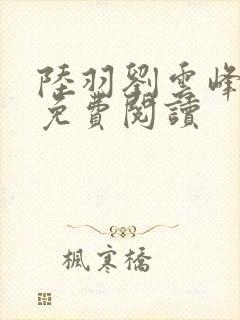 陸羽劉雲峰
免費閱讀
楓寒橋